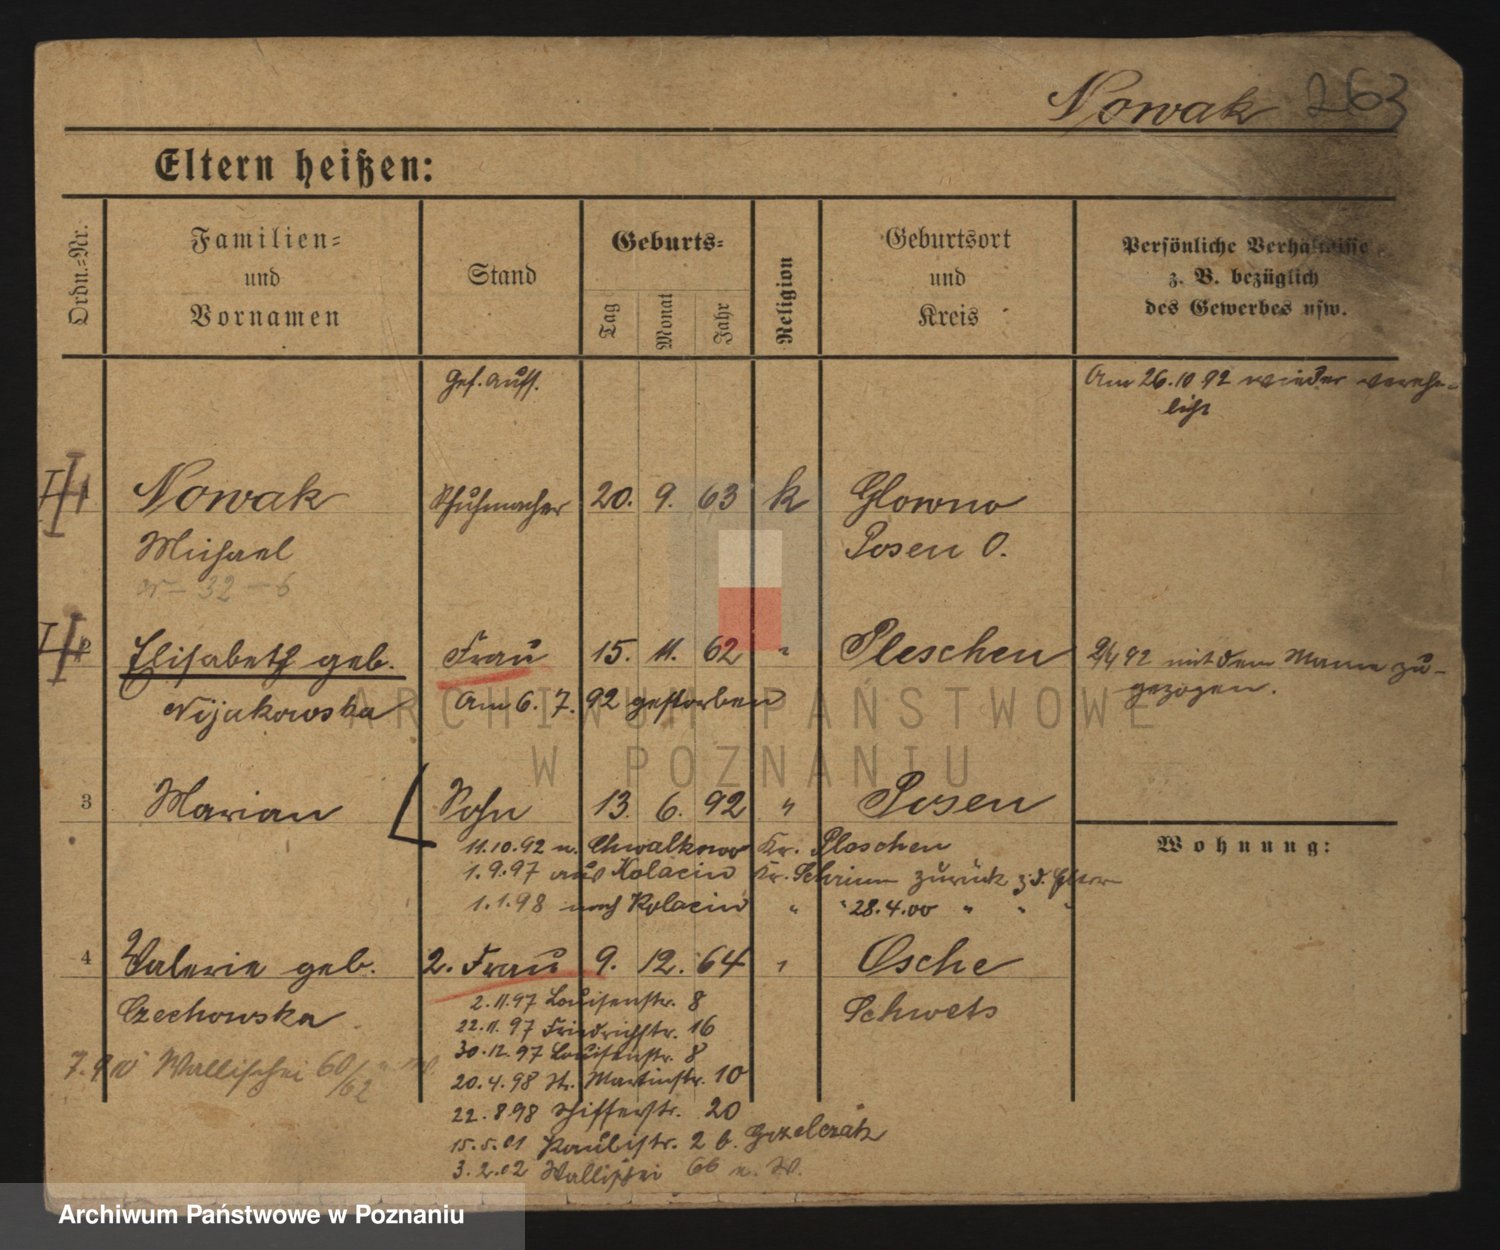 Nowak 263
Eltern heißen:
Ordn.-Nr.
Familien-
und
Vornamen
Stand
Geburts-
Tag
Monat
Jahr
Religion
Geburtsort
und
Kreis
Persönliche Verhältnisse
z. B. bezüglich
des Gewerbes usw.
Am 26.10 92 wieder vereh-
licht
1 Nowak Schuhmacher 20. 9. 63 k Glowno
Michael Posen O.
32 - 6
2 Elisabeth geb. Frau 15. 11. 62 " Pleschen 2/4 92 mit dem Manne zu-
gezogen.
Nijakowska Am 6. 7. 92 gestorben
3 Marian Sohn 13. 6. 92 " Posen
Wohnung:
11.10.92 n. Chwalkowo Kr. Pleschen
1.9.97 aus Kolacin Kr. Schrimm zurück z. d. Eltern
1.1.98 nach Kolacin " " 28.4.00 " " "
4 Valerie geb. 2. Frau 9. 12. 64 " Osche
Czechowska Schwetz
2.11.97 Louisenstr. 8
22.11.97 Friedrichstr. 16
30.12.97 Louisenstr. 8
7.9 Wallischei 60/62
20.4.98 St. Martinstr. 10
22.8 98 Schifferstr. 20
15.5.01 Paulistr. 2 b. Grzelczak
3.2.02 Wallischei 66 n. W.
ARCHIWUM PAŃSTWOWE
W POZNANIU
Archiwum Państwowe w Poznaniu